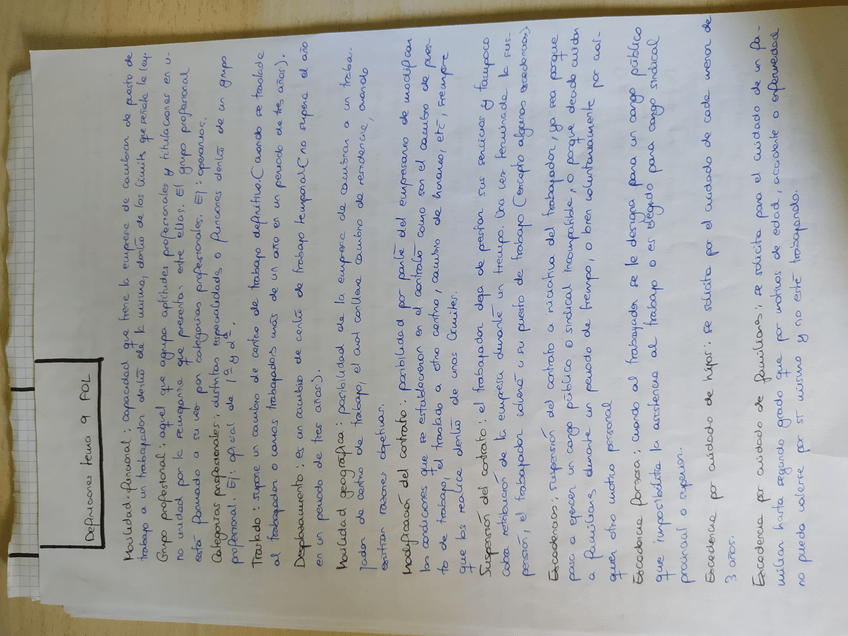 Definiciones tema 9 FOL
Movilidad funcional: capacidad que tiene la empresa de cambiar de puesto de
trabajo a un trabajador dentro de la misma, dentro de los límites que señala la ley.
Grupo profesional: aquel que agrupa aptitudes profesionales y titulaciones en u-
na unidad por la semejanza que presentan entre ellas. El grupo profesional
está formado a su vez por categorías profesionales. Ej: operarios.
Categorías profesionales: distintas especialidades o funciones dentro de un grupo
profesional. Ej: oficial de 1ª y 2ª.
Traslado: supone un cambio de centro de trabajo definitivo. (cuando se traslada
al trabajador o varios trabajadores más de un año en un periodo de tres años).
Desplazamiento: es un cambio de centro de trabajo temporal. (no supera el año
en un periodo de tres años).
Movilidad geográfica: posibilidad de la empresa de cambiar a un traba-
jador de centro de trabajo, el cual conlleva cambio de residencia, cuando
existan razones objetivas.
Modificación del contrato: posibilidad por parte del empresario de modificar
las condiciones que se establecieron en el contrato como son el cambio de pues-
to de trabajo, el traslado a otro centro, cambio de horario, etc, siempre
que las realice dentro de unos límites.
Suspensión del contrato: el trabajador deja de prestar sus servicios y tampoco
cobra retribución de la empresa durante un tiempo. Una vez terminada la sus-
pensión, el trabajador vuelve a su puesto de trabajo (excepto algunas excedencias)
Excedencias: suspensión del contrato a iniciativa del trabajador, ya sea porque
pasa a ejercer un cargo público o sindical incompatible, o porque decide cuidar
a familiares durante un periodo de tiempo, o bien voluntariamente por cual-
quier otro motivo personal
Excedencia forzosa: cuando al trabajador se le designa para un cargo público
que imposibilita la asistencia al trabajo o es elegido para cargo sindical
provincial o superior.
Excedencia por cuidado de hijos: se solicita por el cuidado de cada menor de
3 años.
Excedencia por cuidado de familiares: se solicita para el cuidado de un fa-
miliar hasta segundo grado que por motivos de edad, accidente o enfermedad
no pueda valerse por sí mismo y no esté trabajando.